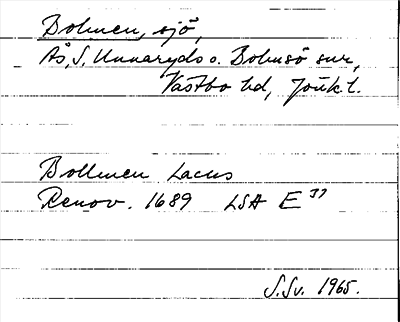 Bolmen, sjö,
Ås, S. Unnaryds o. Bolmsö snr,
Västbo hd, Jönk l.
Bollmen Lacus
Renov. 1689 LSA E 37
S.Sv. 1965.